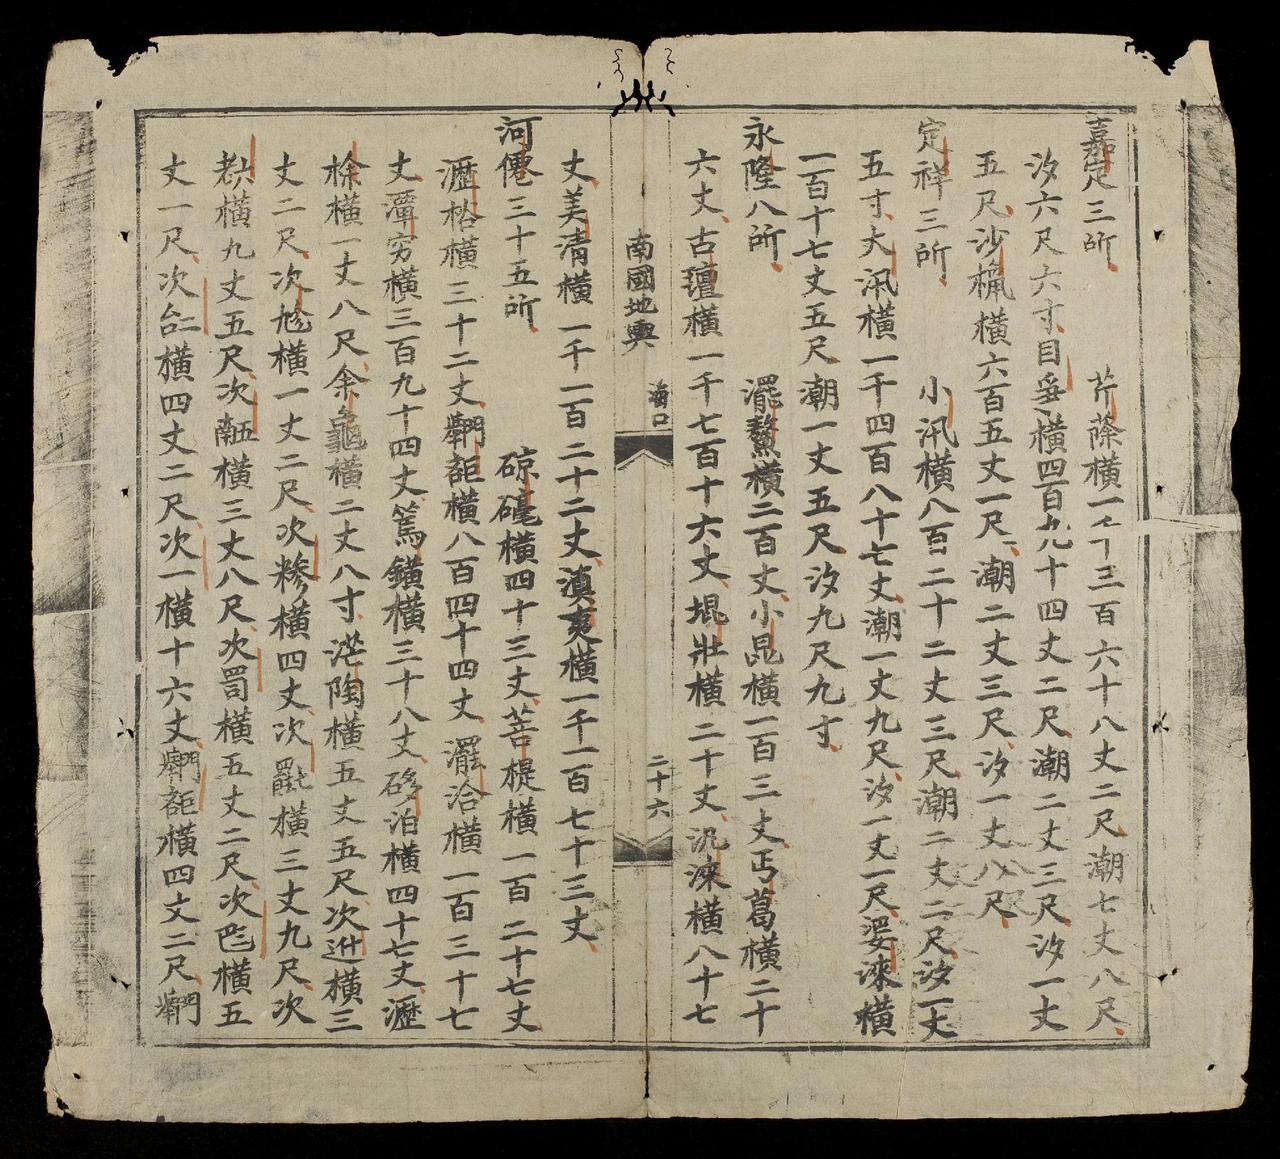 嘉定三所 芹蒢橫一千三百六十八丈二尺潮七丈八尺
汐六尺六寸目㕠橫四百九十四丈二尺潮二丈三尺汐一丈
五尺沙橫六百五丈一尺潮二丈三尺汐一丈八尺
定祥三所 小汛橫八百二十二丈三尺潮二丈二尺汐一丈
五寸大汛橫一千四百八十七丈潮一丈九尺汐一丈一尺淶橫
一百十七丈五尺潮一丈五尺汐九尺九寸
永隆八所 灑鰲橫二百丈小昆橫一百三丈丐葛橫二十
六丈古壇橫一千七百十六丈壯橫二十丈汎淶橫八十七
南國地輿 海口 二十六
丈美清橫一千一百二十二丈滇夷橫一千一百七十三丈
河僊三十五所 磢橫四十三丈菩橫一百二十七丈
瀝橫三十二丈橫八百四十四丈灑洽橫一百三十七
丈潭穷橫三百九十四丈篤鐄橫三十八丈泊橫四十七丈瀝
橫一丈八尺余龜橫二丈八寸陶橫五丈五尺次橫三
丈二尺次橫一丈二尺次橫四丈次橫三丈九尺次
橫九丈五尺次橫三丈八尺次橫五丈二尺次橫五
丈一尺次橫四丈二尺次一橫十六丈橫四丈二尺